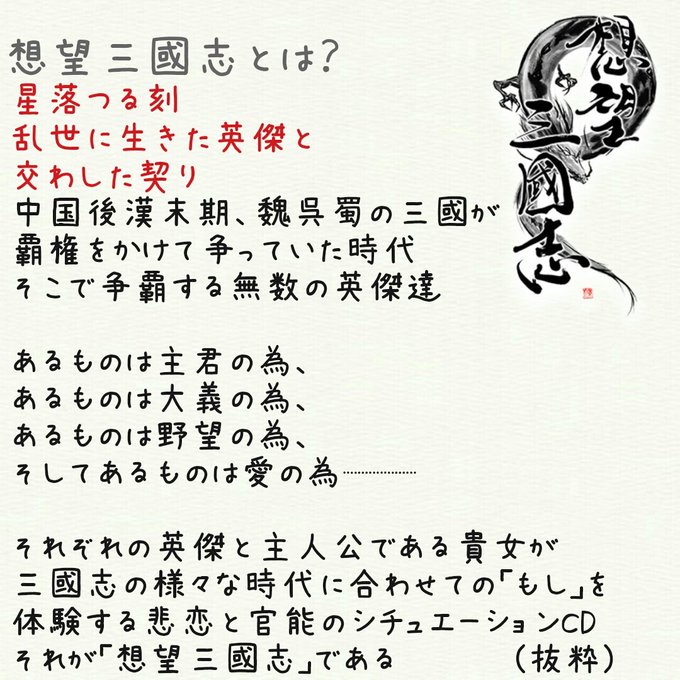 想望三國志とは?
星落つる刻
乱世に生きた英傑と
交わした契り
中国後漢末期、魏呉蜀の三國が
覇権をかけて争っていた時代
そこで争覇する無数の英傑達
あるものは主君の為、
あるものは大義の為、
あるものは野望の為、
そしてあるものは愛の為…………………
それぞれの英傑と主人公である貴女が
三國志の様々な時代に合わせての「もし」を
体験する悲恋と官能のシチュエーションCD
それが「想望三國志」である (抜粋)
想望
三國志